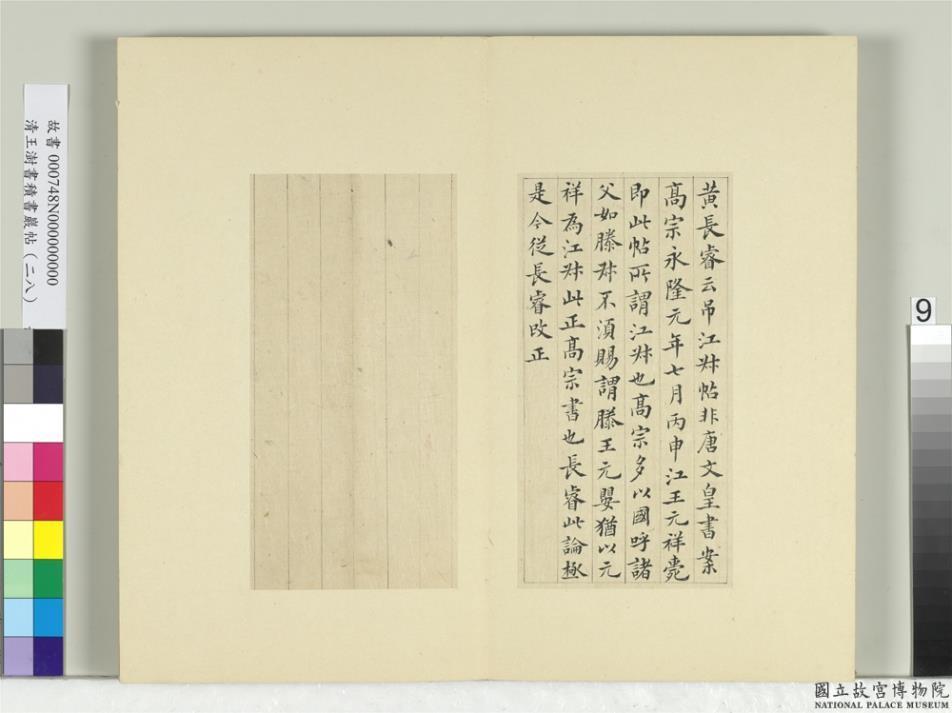 黃長睿云吊江𤕌帖非唐文皇書案
髙宗永隆元年七月丙申江王元祥薨
即此帖所謂江𤕌也髙宗多以國呼諸
父如滕𤕌不須賜謂滕王元嬰猶以元
祥為江𤕌此正髙宗書也長睿此論極
是今從長睿改正
故書 000748N000000000
清王澍書積書巖帖(二八)
9
國立故宮博物院
NATIONAL PALACE MUSEUM